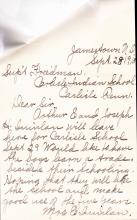 Jamestown N.D.
Sept 28-19
Sup't Friedman.
Carlisle Indian School
Carlisle Penn.
Dear Sir
Arthur E and Joseph
H. Quinlan will leave
here for Carlisle School
Sept 29 Would like to have
the boys learn a trade
besides their schooling.
Hoping that they will like
the School and make
good use of the five years
Mrs E Quinlan